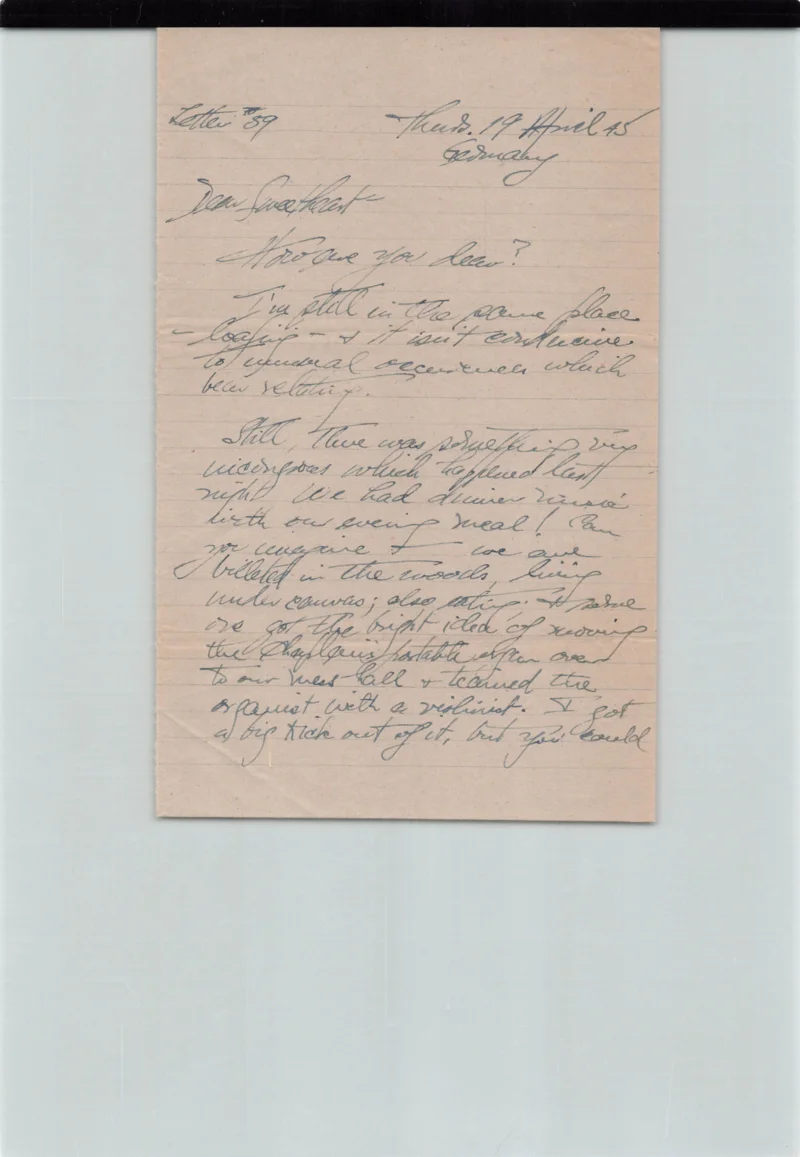 Letter #89 Thurs. 19 April 45
Germany
Dear Sweetheart -
How are you dear?
I'm still in the same place
- loafing - & it isn't conducive
to unusual occurences which
bear relating.
Still, there was something very
which happened last
night. We had dinner music
with our evening meal! Can
you imagine it - we are
billeted in the woods, living
under canvas; also eating. & some
one got the bright idea of moving
the Chaplain's portable organ over
to our mess-hall & teamed the
organist with a violinist. I got
a big kick out of it, but you could